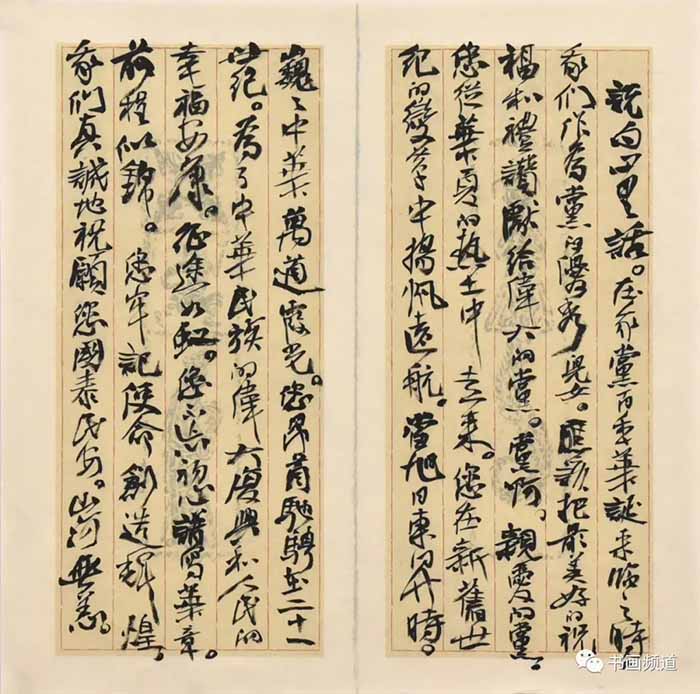 說句心里話。在我黨百年華誕来臨之時
我們作為黨的優秀兒女。應該把最美好的祝
福和禮讚獻給偉大的黨。黨啊。親愛的黨。
您從華夏的熱土中走来。您在新舊世
紀的變革中揚帆遠航。當旭日東昇時。
巍〻中華萬道霞光。您昂首馳騁在二十一
世紀。為了中華民族的偉大復興和人民的
幸福安康。征途如虹。您不忘初心譜寫華章。
前程似錦。您牢記使命創造輝煌。
我們真誠地祝願您國泰民安。山河無恙。
书画频道